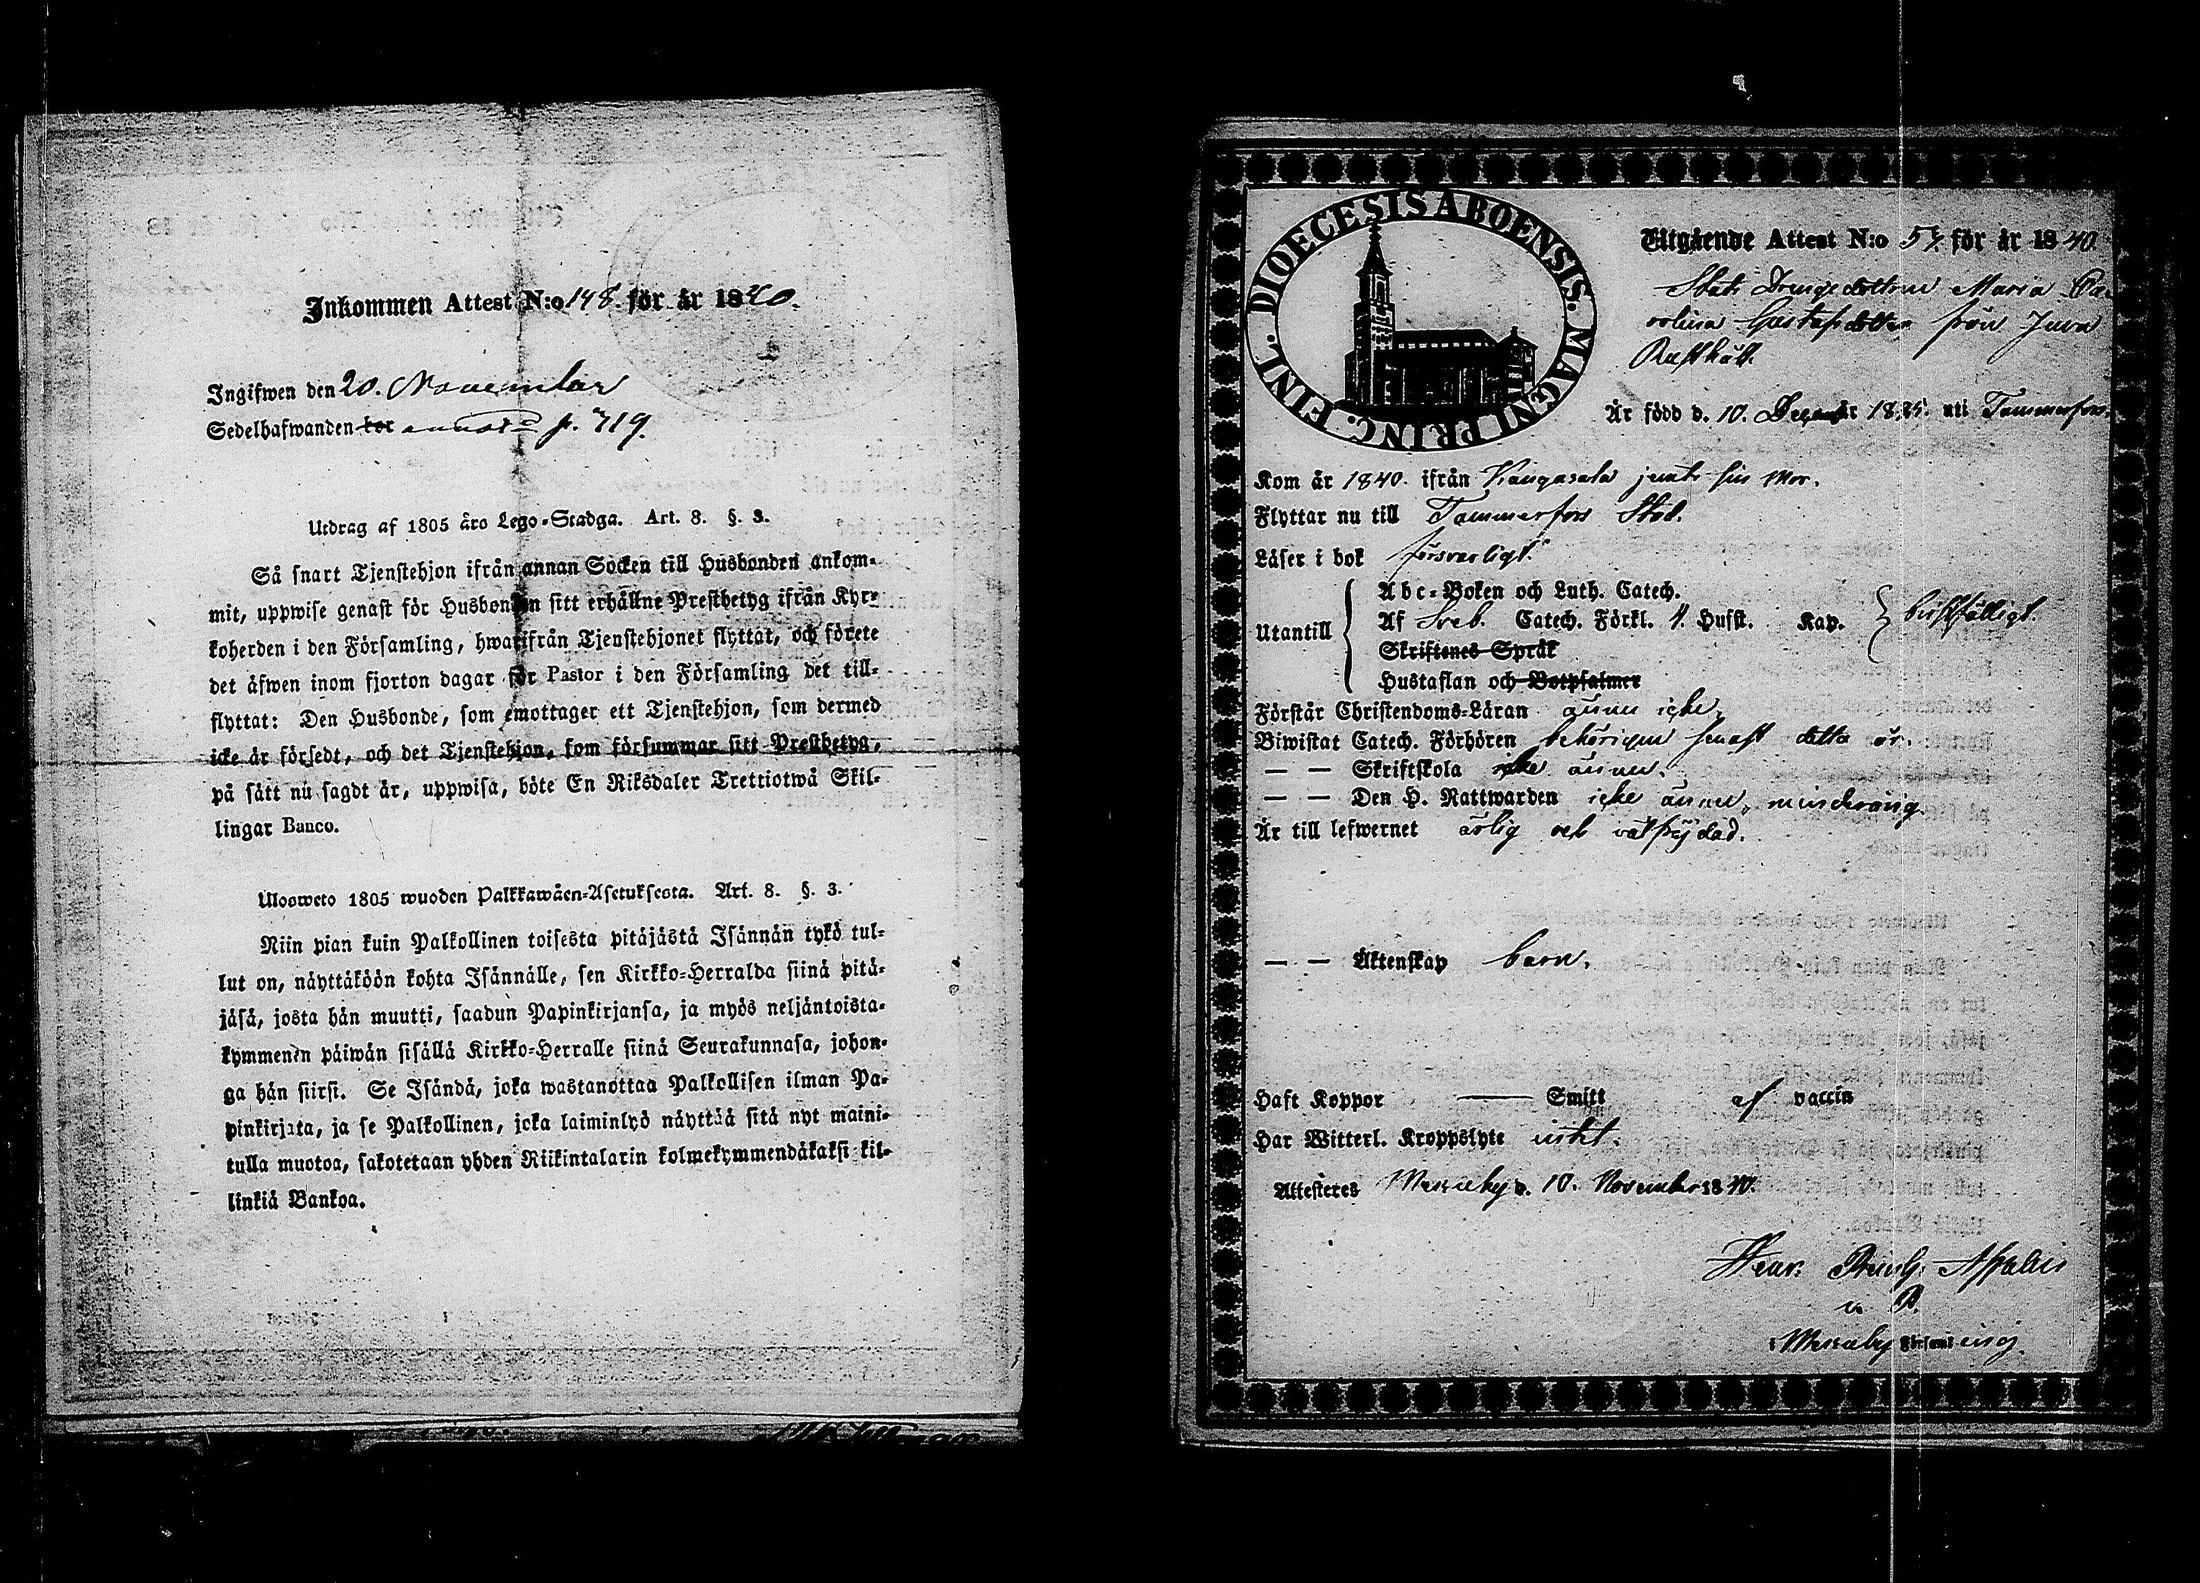 Inkommen Attest N:o 148. för år 1840.
Ingifwen den 20. November
Sedelhafwanden bor annor p. 719.
Utdrag af 1805 års Lego-Stadga. Art. 8. §. 3.
Så snart Tjenstehjon ifrån annan Socken till Husbonden ankom-
mit, uppwise genast för Husbonden sitt erhållne Prestbetyg ifrån Kyr-
koherden i den Församling, hwarifrån Tjenstehjonet flyttat, och förete
det äfwen inom fjorton dagar för Pastor i den Församling det till-
flyttat: Den Husbonde, som emottager ett Tjenstehjon, som dermed
icke är försedt, och det Tjenstehjon, som försummar sitt Prestbetyg,
på sätt nu sagdt är, uppwisa, böte En Riksdaler Trettiotwå Skil-
lingar Banco.
Ulosweto 1805 wuoden Palkkawäen-Asetuksesta. Art. 8. §. 3.
Niin pian kuin Palkollinen toisesta pitäjästä Isännän tykö tul-
lut on, näyttäköön kohta Isännälle, sen Kirkko-Herralda siinä pitä-
jäsä, josta hän muutti, saadun Papinkirjansa, ja myös neljäntoista-
kymmenen päiwän sisällä Kirkko-Herralle siinä Seurakunnasa, johon-
ga hän siirsi. Se Isändä, joka wastanottaa Palkollisen ilman Pa-
pinkirjata, ja se Palkollinen, joka laiminlyö näyttää sitä nyt maini-
tulla muotoa, sakotetaan yhden Riikintalarin kolmekymmendäkaksi kil-
linkiä Bankoa.
DIOECESIS ABOENSIS. MAGNI PRINC. FINL.
Utgående Attest N:o 57 för år 1840
Stats Drengedottren Maria Ca-
rolina Gustafsdotter från Juva
Rusthåll
Är född d. 10. Decem år 1835. uti Tammerfors.
Kom år 1840. ifrån Kangasala jemte sin Mor.
Flyttar nu till Tammerfors Stad.
Läser i bok försvarligt.
Utantill
Abc-Boken och Luth. Catech.
Af Sveb. Catech. Förkl. 4. Hufst. Kap. bristfälligt.
Skriftenes Språk
Hustaflan och Botpsalmer
Förstår Christendoms-Läran ännu icke.
Biwistat Catech. Förhören behörigen senast detta år.
— — Skriftskola icke ännu.
— — Den H. Nattwarden icke ännu, minderårig.
Är till lefwernet ärlig och välfrejdad.
— — Äktenskap barn.
Haft Koppor — Smitt af vaccin
Har Witterl. Kroppslyte intet.
Attesteres Messuby d. 10. November 1840.
v. P.
i Messuby Församling